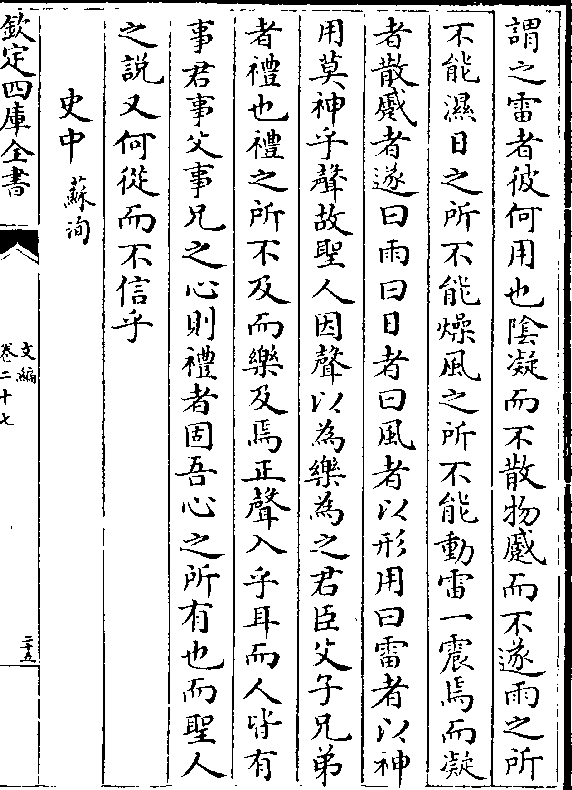 謂之雷者彼何用也隂凝而不散物蹙而不遂雨之所
不能濕日之所不能燥風之所不能動雷一震焉而凝
者散蹙者遂曰雨曰日者曰風者以形用曰雷者以神
用莫神乎聲故聖人因聲以為樂為之君臣父子兄弟
者禮也禮之所不及而樂及焉正聲入乎耳而人皆有
事君事父事兄之心則禮者固吾心之所有也而聖人
之說又何從而不信乎
史中 蘇洵
欽定四庫全書
文編
卷二十七
二十五